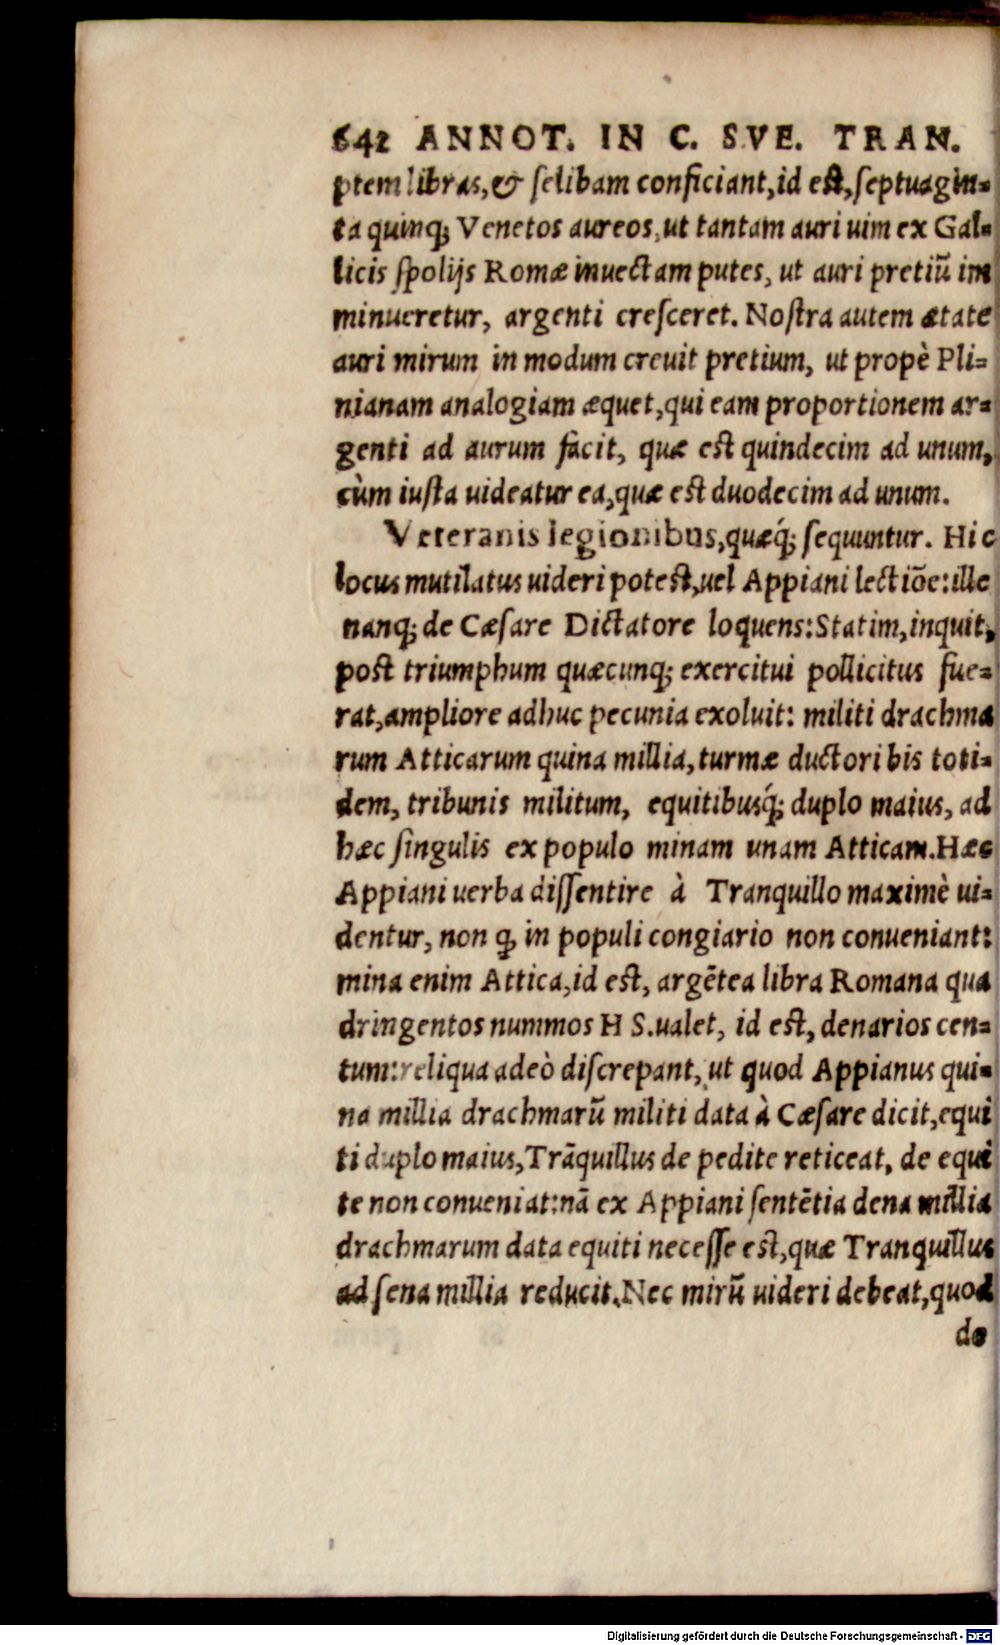 642 ANNOT. IN C. SVE. TRAN.
ptem libras, & selibam conficiant, id est, septuagin-
ta quinq; Venetos aureos, ut tantam auri uim ex Gal-
licis spolijs Romæ inuectam putes, ut auri pretiũ im
minueretur, argenti cresceret. Nostra autem ætate
auri mirum in modum creuit pretium, ut propè Pli-
nianam analogiam æquet, qui eam proportionem ar-
genti ad aurum facit, quæ est quindecim ad unum,
cùm iusta uideatur ea, quæ est duodecim ad unum.
Veteranis legionibus, quæq́; sequuntur. Hic
locus mutilatus uideri potest, uel Appiani lectiõe: ille
nanq; de Cæsare Dictatore loquens: Statim, inquit,
post triumphum quæcunq; exercitui pollicitus fue-
rat, ampliore adhuc pecunia exoluit: militi drachma
rum Atticarum quina millia, turmæ ductori bis toti-
dem, tribunis militum, equitibusq́; duplo maius, ad
hæc singulis ex populo minam unam Atticam. Hæc
Appiani uerba dissentire à Tranquillo maximè ui-
dentur, non ꝙ in populi congiario non conueniant:
mina enim Attica, id est, argẽtea libra Romana qua
dringentos nummos H S. ualet, id est, denarios cen-
tum: reliqua adeò discrepant, ut quod Appianus qui-
na millia drachmarũ militi data à Cæsare dicit, equi
ti duplo maius, Trãquillus de pedite reticeat, de equi
te non conueniat: nã ex Appiani sentẽtia dena millia
drachmarum data equiti necesse est, quæ Tranquillus
ad sena millia reducit. Nec mirũ uideri debeat, quod
de
Digitalisierung gefördert durch die Deutsche Forschungsgemeinschaft - DFG